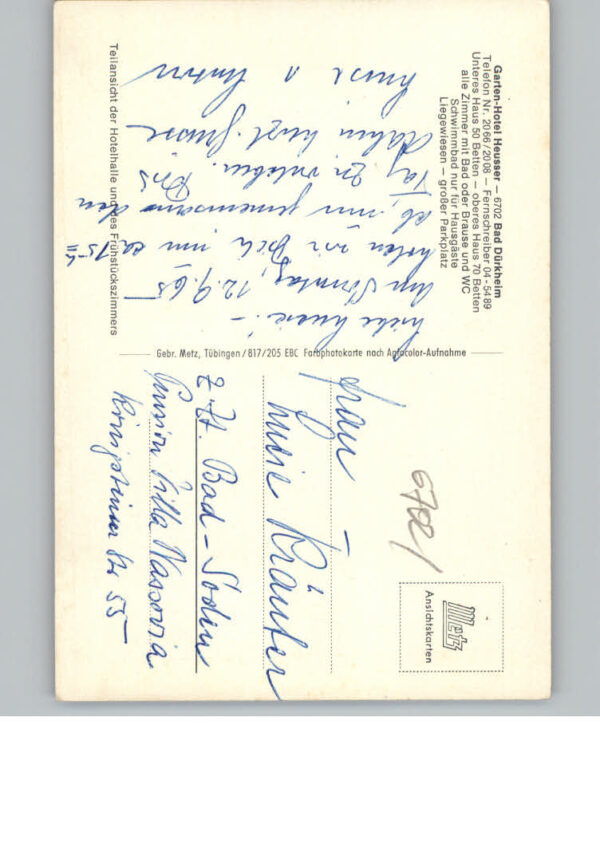 Garten-Hotel Heusser – 6702 Bad Dürkheim
Telefon Nr. 2066/2008 – Fernschreiber 04-5489
Unteres Haus 50 Betten – oberes Haus 70 Betten
alle Zimmer mit Bad oder Brause und WC
Schwimmbad nur für Hausgäste
Liegewiesen – großer Parkplatz
Am Sonntag, 12.9.65
holen wir Dich um ca 15 h
ab, um gemeinsam den
Tag zu
Teilansicht der Hotelhalle und des Frühstückszimmers
Gebr. Metz, Tübingen/817/205 EBC Farbphotokarte nach Agfacolor-Aufnahme
6702/
Metz
Ansichtskarten
Frau
Luise Kräuter
z. Zt. Bad-Soden
Pension Villa Nassovia
Königsteiner Str 55